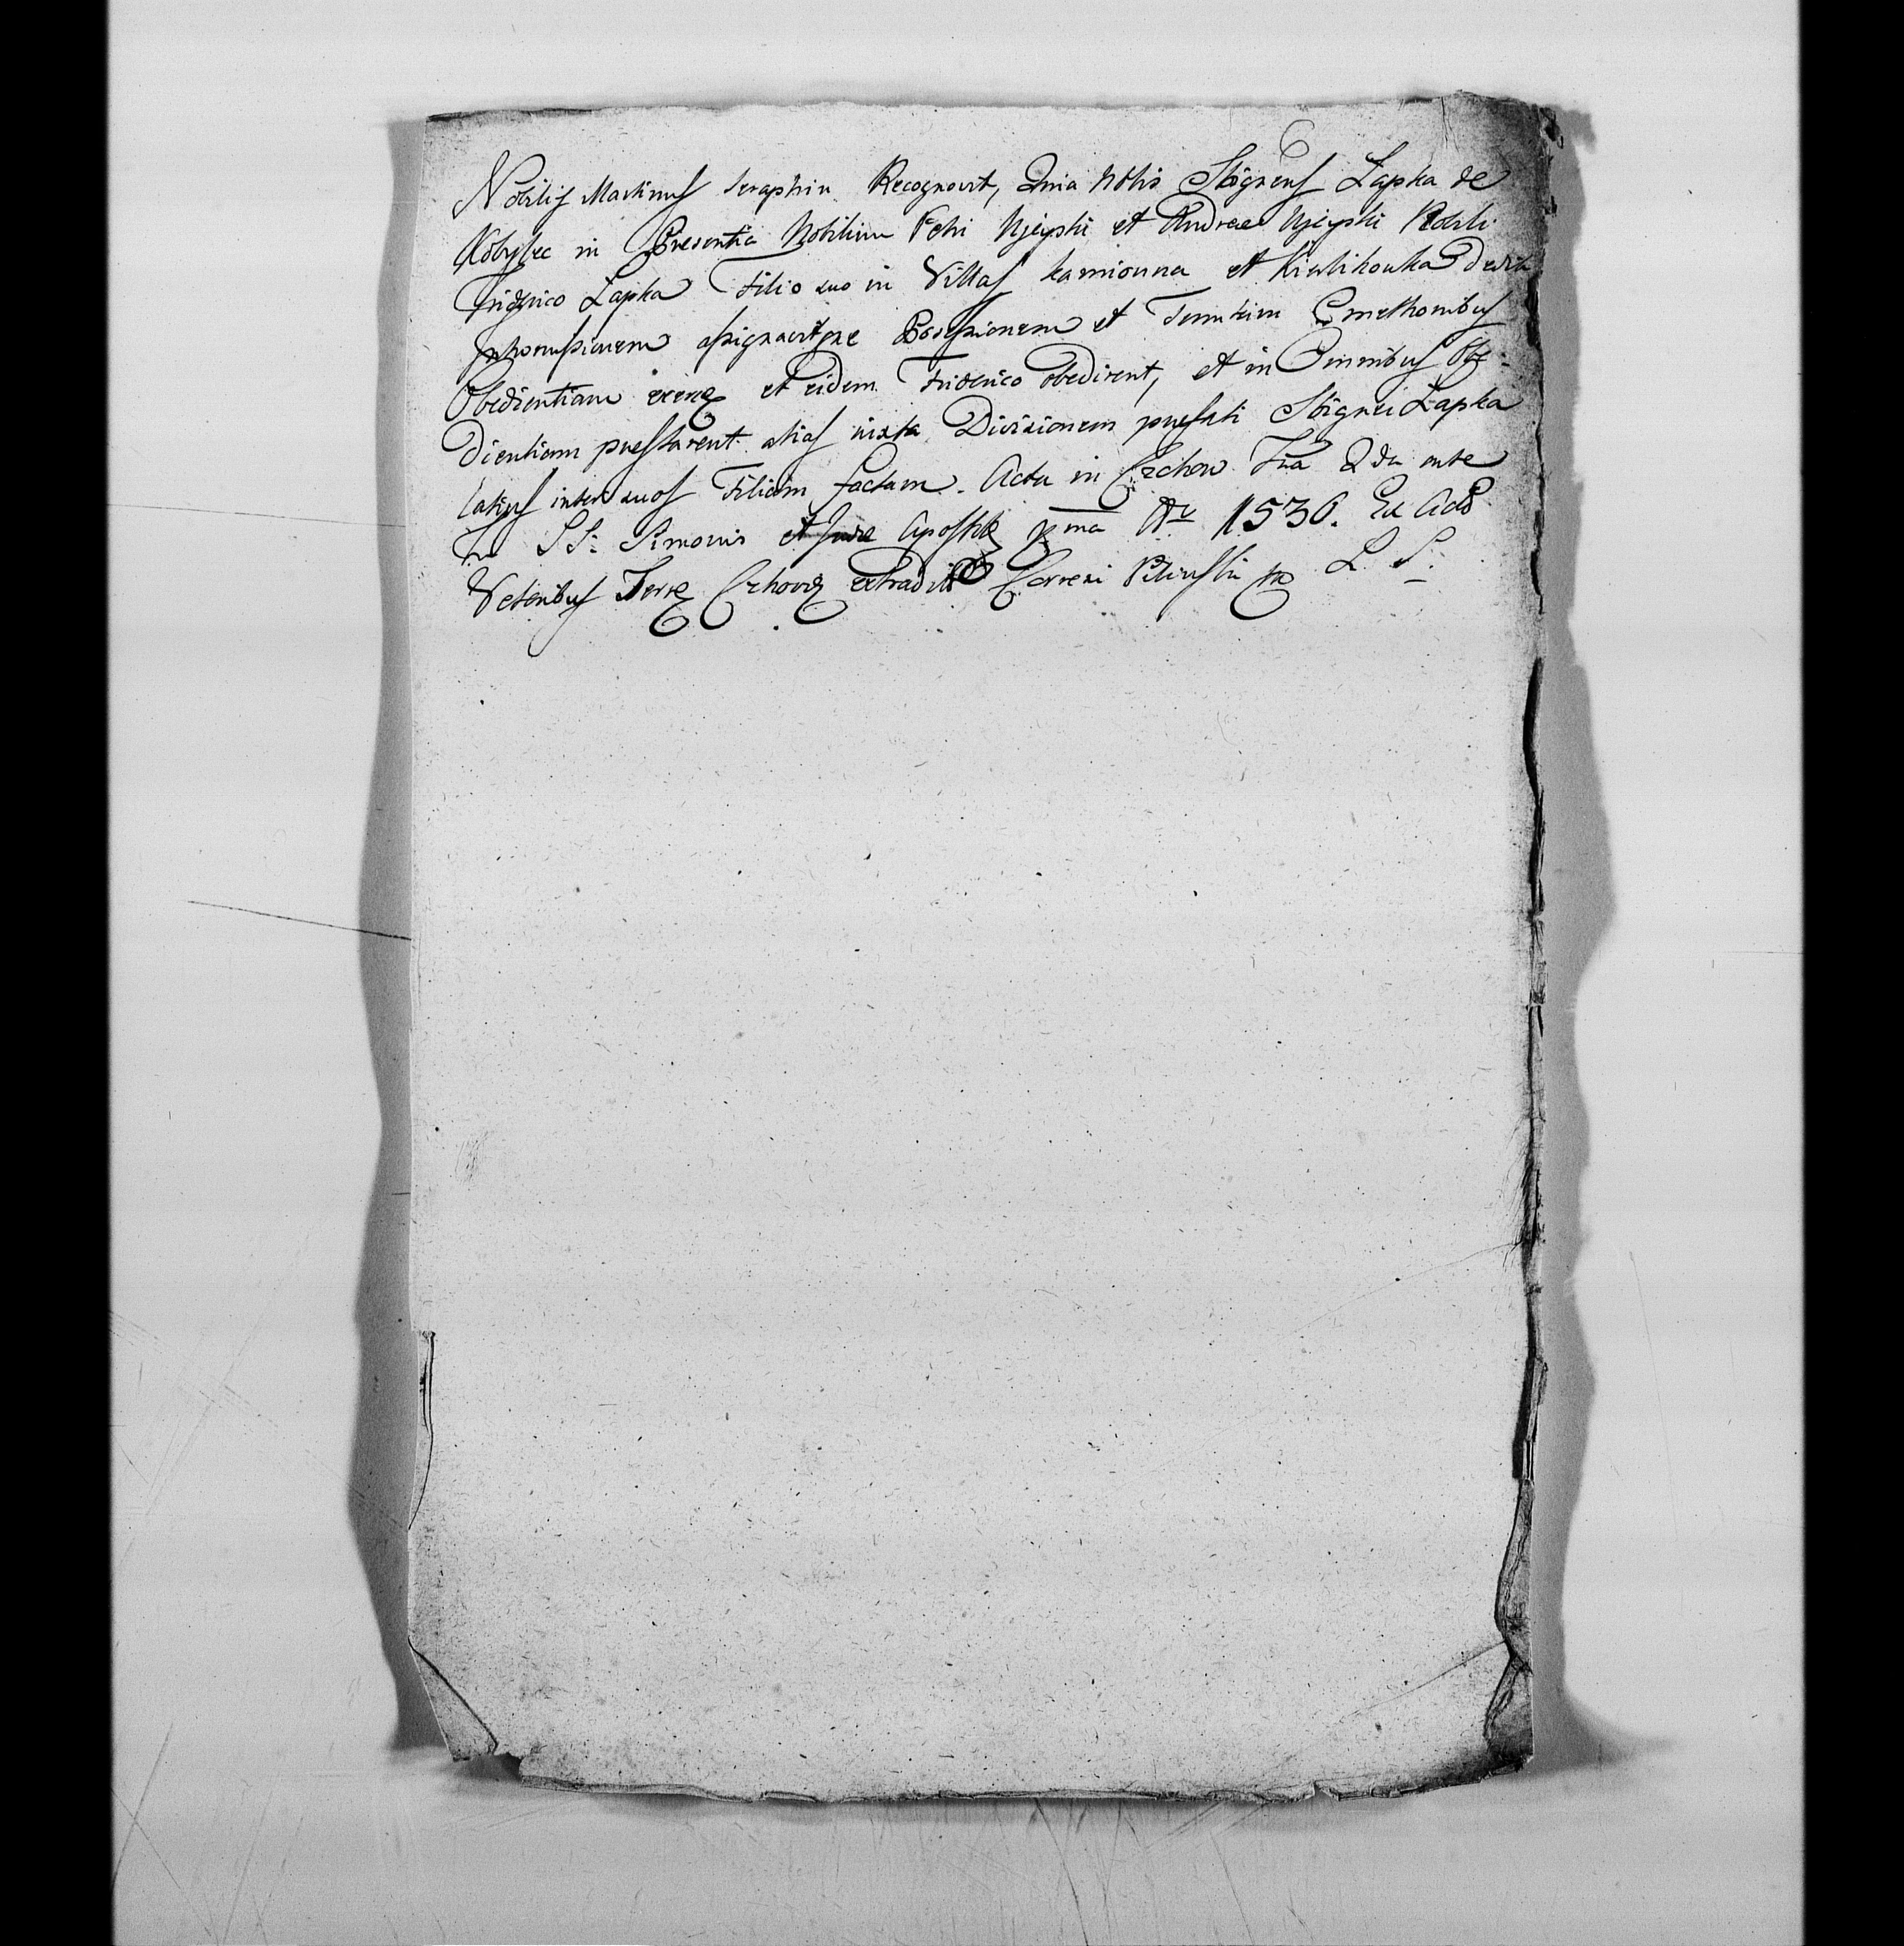 Nobilis Martinus Seraphin Recognovit, Quia Nblis Sbigneus Łapka de
Kobylec in Presentia Nobilium Petri Ujeyski et Andreae Ujeyski Nobili
Friderico Łapka Filio suo in Villas Kamionna et Kierlikowka dedit
Intromissionem assignavitque Possessionem et Cmethonibus
Obedientiam et eidem Friderico obedirent, et in Omnibus Obe:
dientiam prestarent alias iuxta Divisionem prefati Sbignei Łapka
latius inter suos Filios factam. Acta in Czchow Fria 2da ante
Fm SS: Simonis et Jude Apostol pma Ao 1536. Ex Actis
Veteribus Terre Czchov extradit Correxi Pilinski mp L. S: